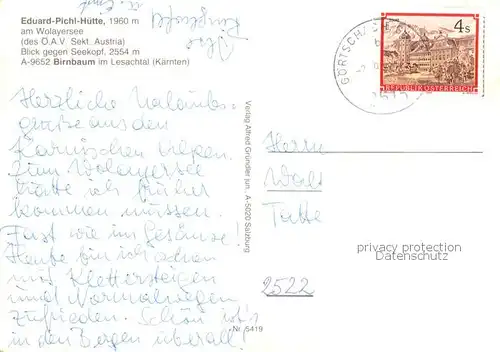 Eduard-Pichl-Hütte, 1960 m
am Wolayersee
(des Ö.A.V. Sekt. Austria)
Blick gegen Seekopf, 2554 m
A-9652 Birnbaum im Lesachtal (Kärnten)
4 S
REPUBLIK ÖSTERREICH
Herzliche Urlaubs-
grüße aus den
Karnischen Alpen.
Zum Wolayersee
hätte ich früher
kommen müssen.
Fast wie im Gesäuse!
Heute bin ich schon
mit Klettersteigen
und Normalwegen
zufrieden. Schön ist's
in den Bergen überall!
Verlag Alfred Gründler jun. A-5020 Salzburg
Nr. 5419
Herrn
2522
privacy protection
www.ansichtskartenversand.com